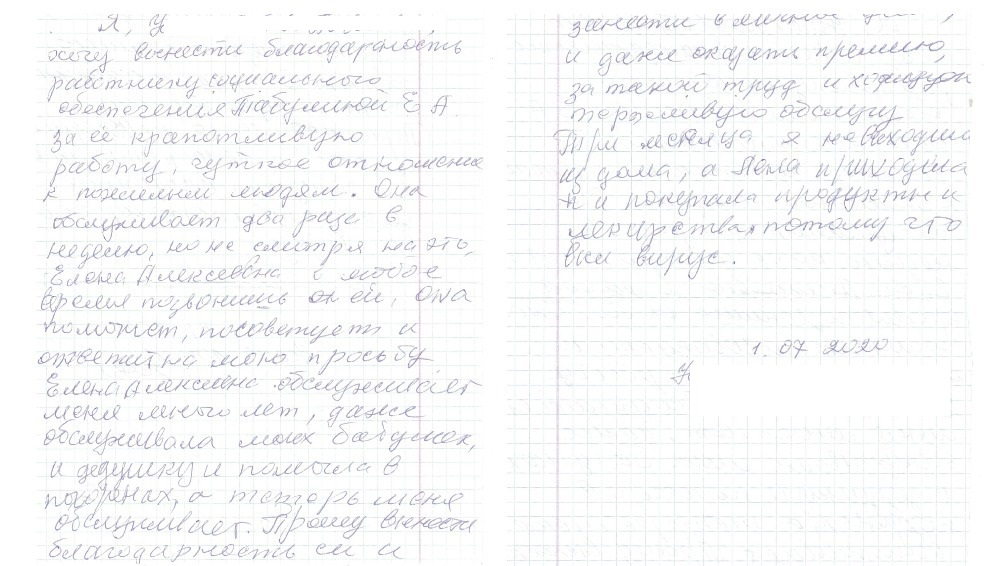 Я, У
хочу вынести благодарность
работнику социального
обеспечения Табулиной Е А.
за её крапотливую
работу, чуткое отношение
к пожилым людям. Она
обслуживает два раза в
неделю, но не смотря на это,
Елена Алексеевна в любое
время позвонишь ей, она
поможет, посоветует и
ответит на мою просьбу
Елена Алексеевна обслуживает
меня много лет, даже
обслуживала моих бабушек,
и дедушку и помогла в
похоронах, а теперь меня
обслуживает. Прошу вынести
благодарность ей и
занести в личное
и даже оказать премию,
за такой труд и
терпеливую обслугу
Три месяца я не выходила
из дома, а Лена приходила
и покупала продукты и
лекарства, потому что
был вирус.
1. 07 2020
У